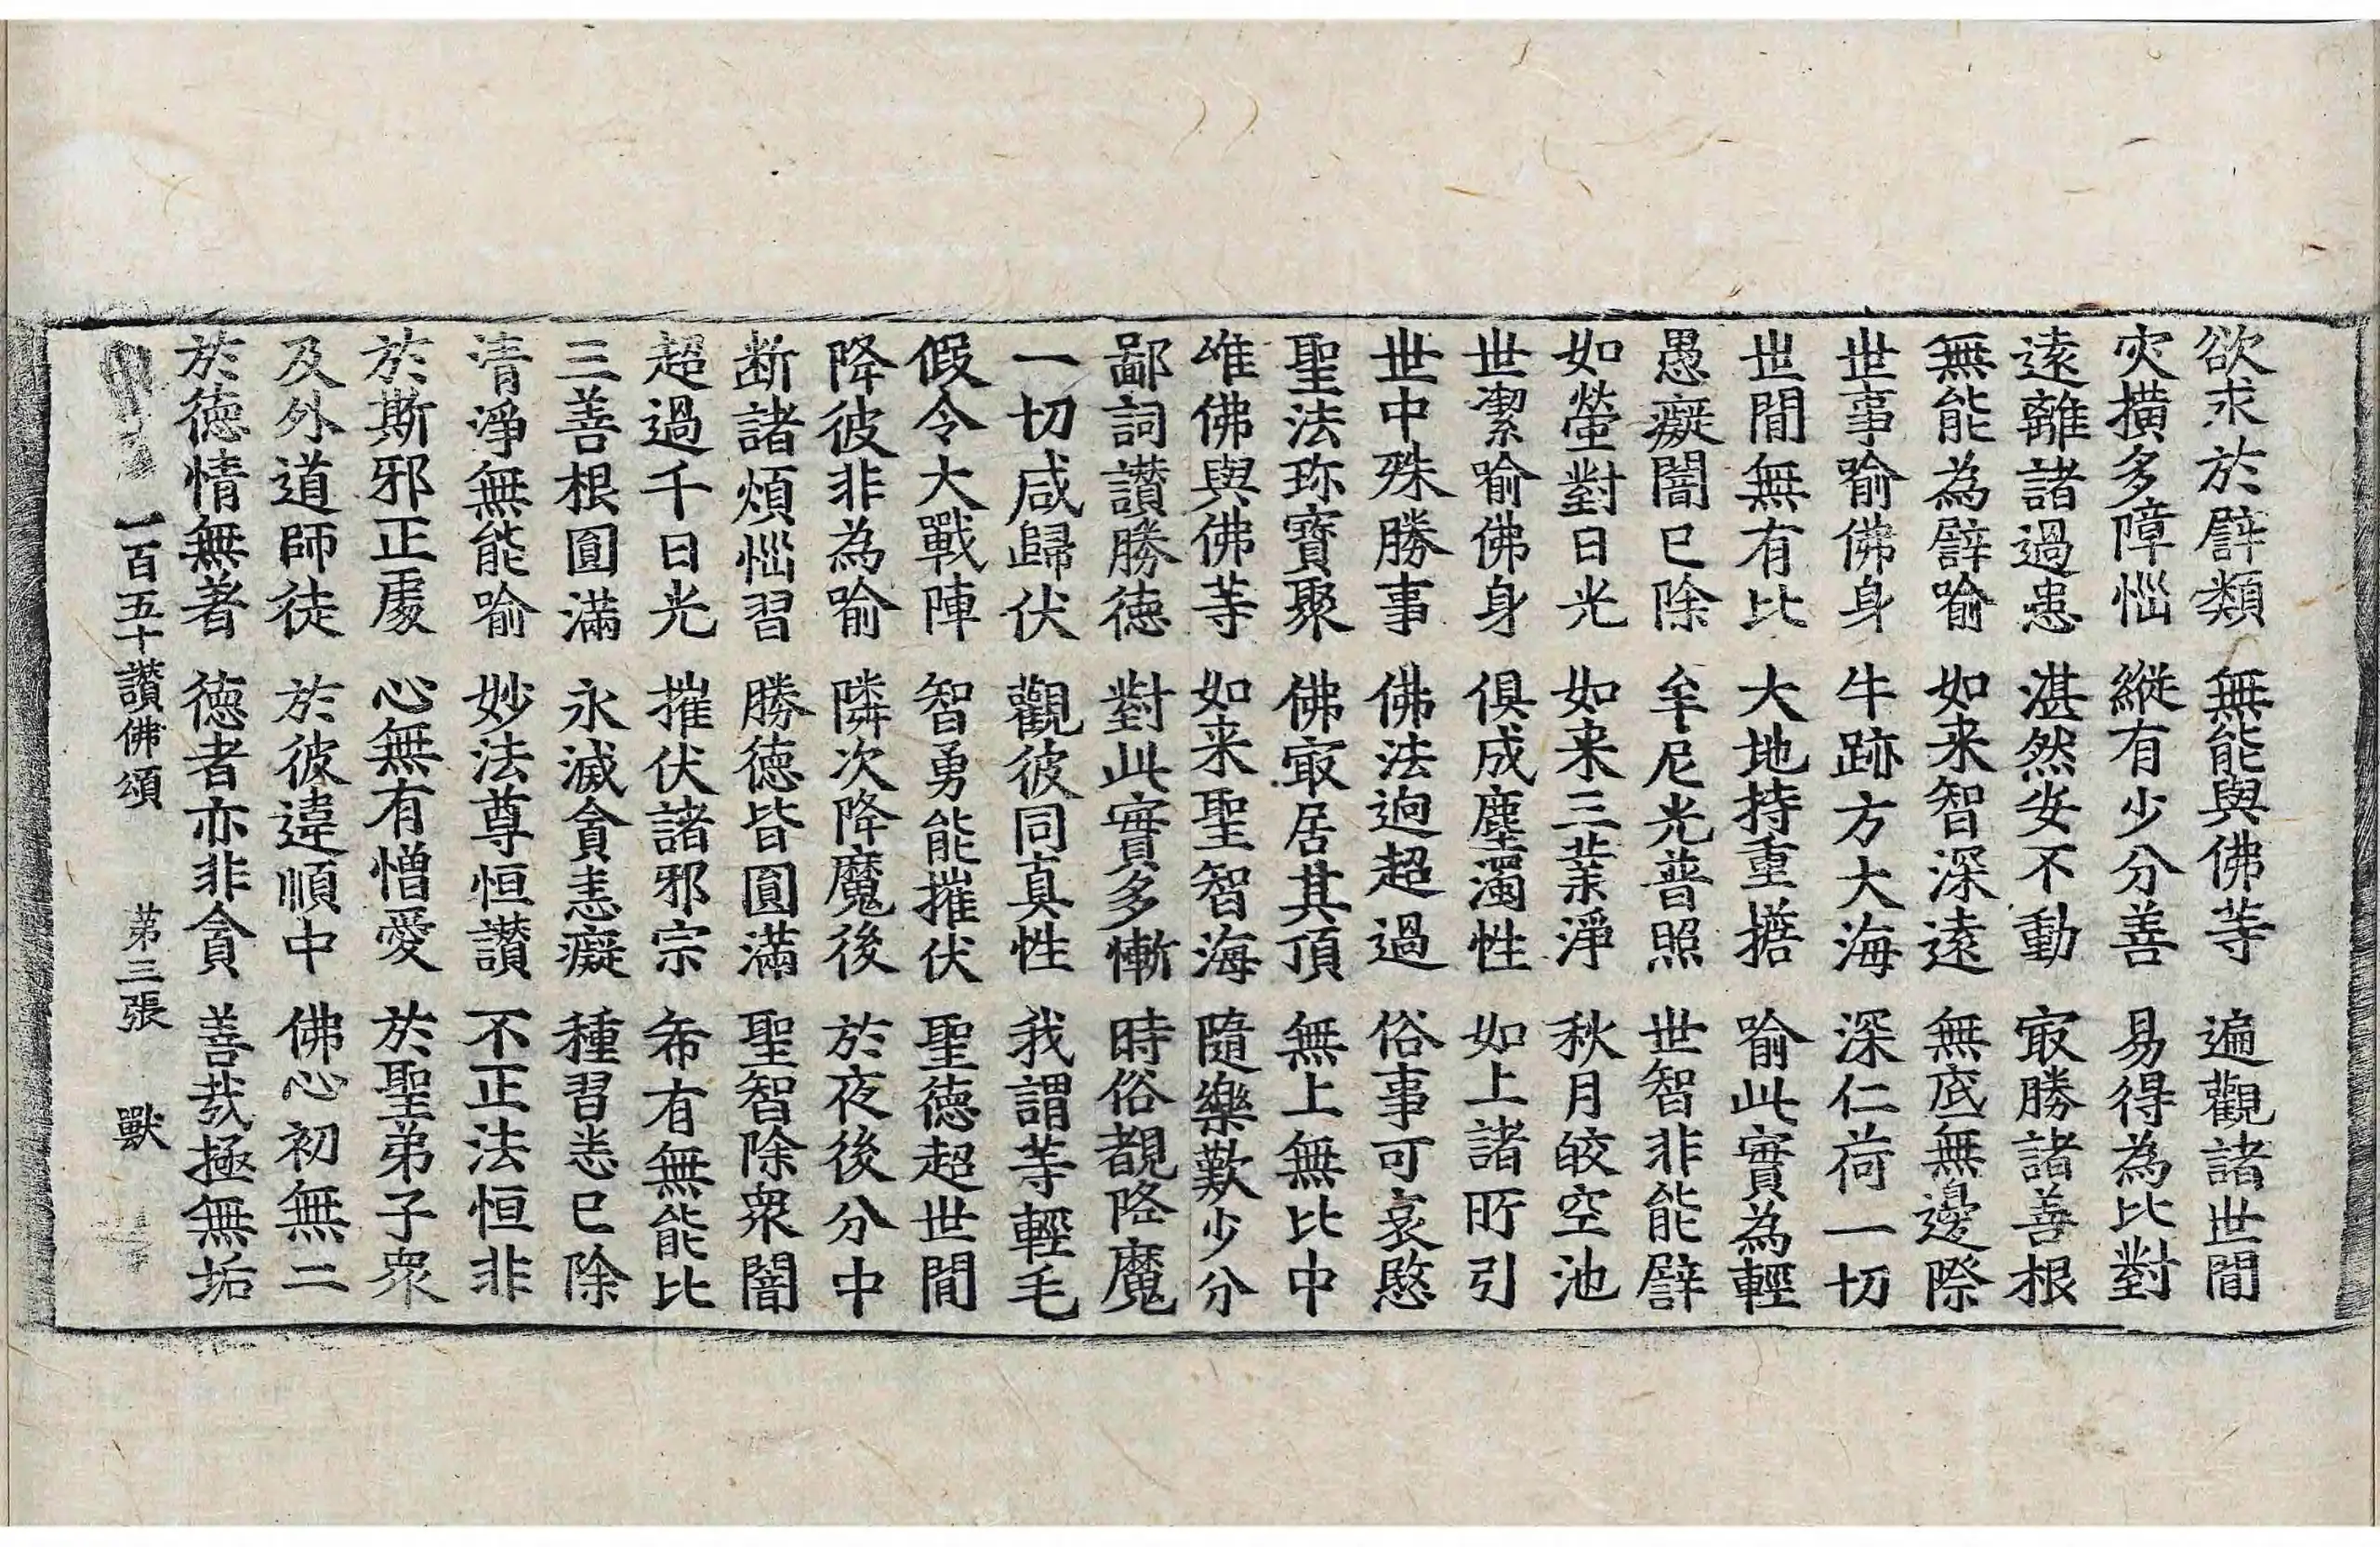 欲求於譬類　無能與佛等　遍觀諸世間
灾撗多障惱　縱有少分善　易得為比對
遠離諸過患　湛然安不動　㝡勝諸善根
無能為譬喻　如来智深遠　無底無邊際
世事喻佛身　牛跡方大海　深仁荷一切
世閒無有比　大地持重擔　喻此實為輕
愚癡闇已除　牟尼光普照　世智非能譬
如螢對日光　如来三業淨　秋月皎空池
世潔喻佛身　俱成塵濁性　如上諸所引
世中殊勝事　佛法逈超過　俗事可哀愍
聖法珎寶聚　佛㝡居其頂　無上無比中
唯佛與佛等　如来聖智海　隨樂歎少分
鄙詞讃勝德　對此實多慚　時俗覩降魔
一切咸歸伏　觀彼同真性　我謂等輕毛
假令大戰陣　智勇能摧伏　聖德超世間
降彼非為喻　隣次降魔後　於夜後分中
断諸煩惱習　勝德皆圓滿　聖智除衆闇
超過千日光　摧伏諸邪宗　希有無能比
三善根圓滿　永滅貪恚癡　種習悉已除
清淨無能喻　妙法尊恒讃　不正法恒非
於斯邪正處　心無有憎愛　於聖弟子衆
及外道師徒　於彼違順中　佛心初無二
於德情無著　德者亦非貪　善哉極無垢
一百五十讃佛頌　苐三張　獸